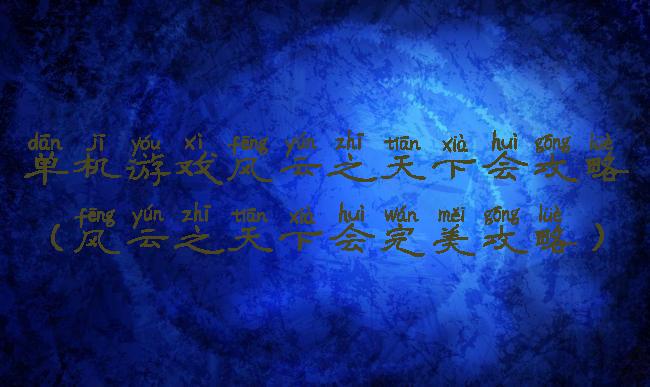 dān jī yóu xì fēng yún zhī tiān xià huì gōng luè
单机游戏风云之天下会攻略
fēng yún zhī tiān xià huì wán měi gōng luè
（风云之天下会完美攻略）